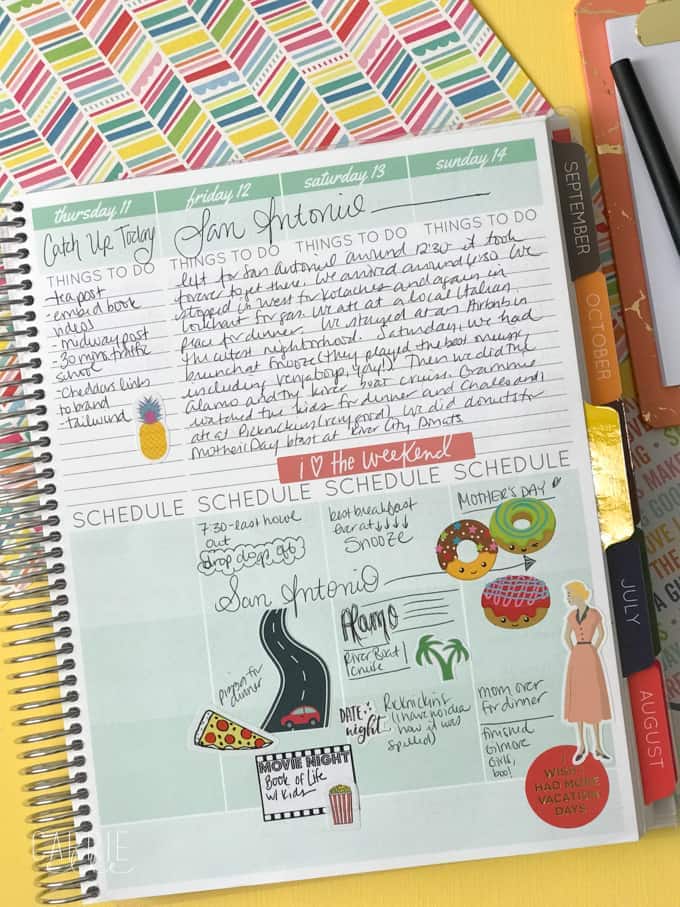 thursday 11
friday 12
saturday 13
sunday 14
Catch Up Today
San Antonio
THINGS TO DO
THINGS TO DO
THINGS TO DO
THINGS TO DO
- tea post
- embed book
videos
- midway post
- 30 mins traffic
school
- Cheddars links
to brand
- tailwind
left for San Antonio around 12:30 it took
forever to get there. We arrived around 6:30. We
stopped in West for Kolaches and again in
for gas. We ate at a local Italian
place for dinner. We stayed at an Airbnb in
the cutest neighborhood. Saturday, we had
brunch at Snooze (they played the best music
including Vengaboys, yay!). Then we did the
Alamo and the river boat cruise. Grammie
watched the kids for dinner and Chaleo and I
ate at Picknickins (very good). We did donuts for
Mother's Day bkfst at River City Donuts.
i ♡ the weekend
SCHEDULE
SCHEDULE
SCHEDULE
SCHEDULE
7:30-last howl
out
drop dogs off
best breakfast
ever at ↓↓↓↓
Snooze
MOTHER'S DAY
San Antonio
Alamo
River Boat
Cruise
pizza for
dinner
DATE
night
Ricknickins
(I have no idea
how it was
spelled)
mom over
for dinner
finished
Gilmore
Girls,
boo!
MOVIE NIGHT
Book of life
w/ Kids
HAD MORE
VACATION
DAYS...
SEPTEMBER
OCTOBER
JULY
AUGUST